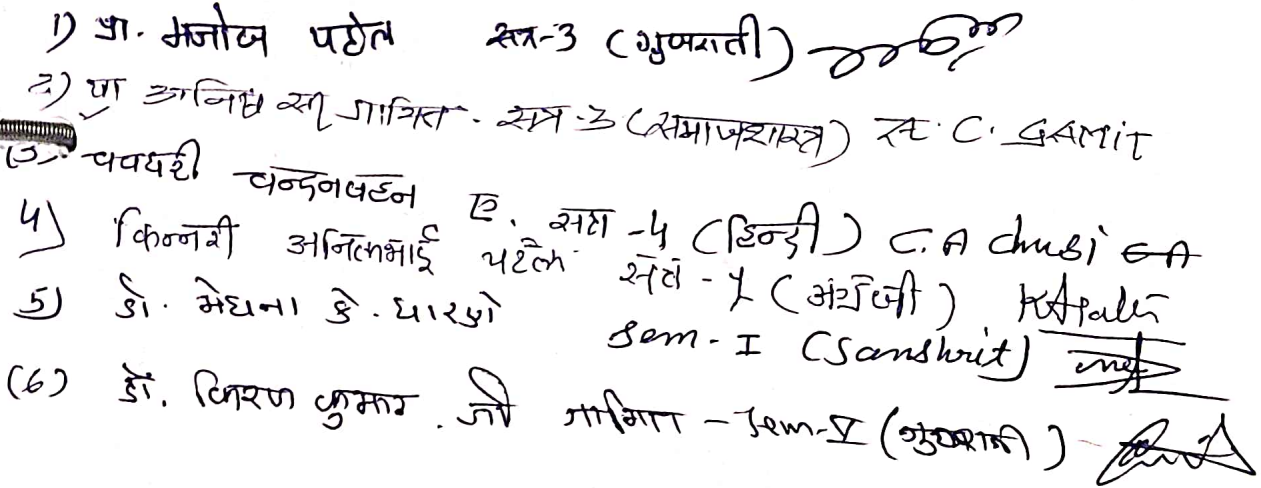 1) प्रा. मनोज पटेल सत्र-3 (गुजराती)
2) प्रा अनिल सी गामित - सत्र-3 (समाजशास्त्र) A. C. GAMIT
(3) चवधरी चन्दनबहन ए. सत्र -4 (हिन्दी) C.A
4) किन्नरी अनिलभाई पटेल सत्र - (अंग्रेजी) KAPatel
5) डॉ. मेघना के. धारणे Sem - I (Sanskrit)
(6) डॉ. किरण कुमार. जी गामित - Sem-V (गुजराती)